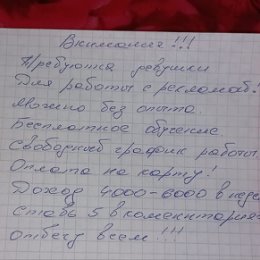 Внимания!!!
Требуются девушки
Для работы с рекламой!
Можно без опыта.
Бесплатное обучение
Свободный график работы,
Оплата на карту!
Доход 4000-6000 в неде
Ставь 5 в коментариях
Отвечу всем!!!